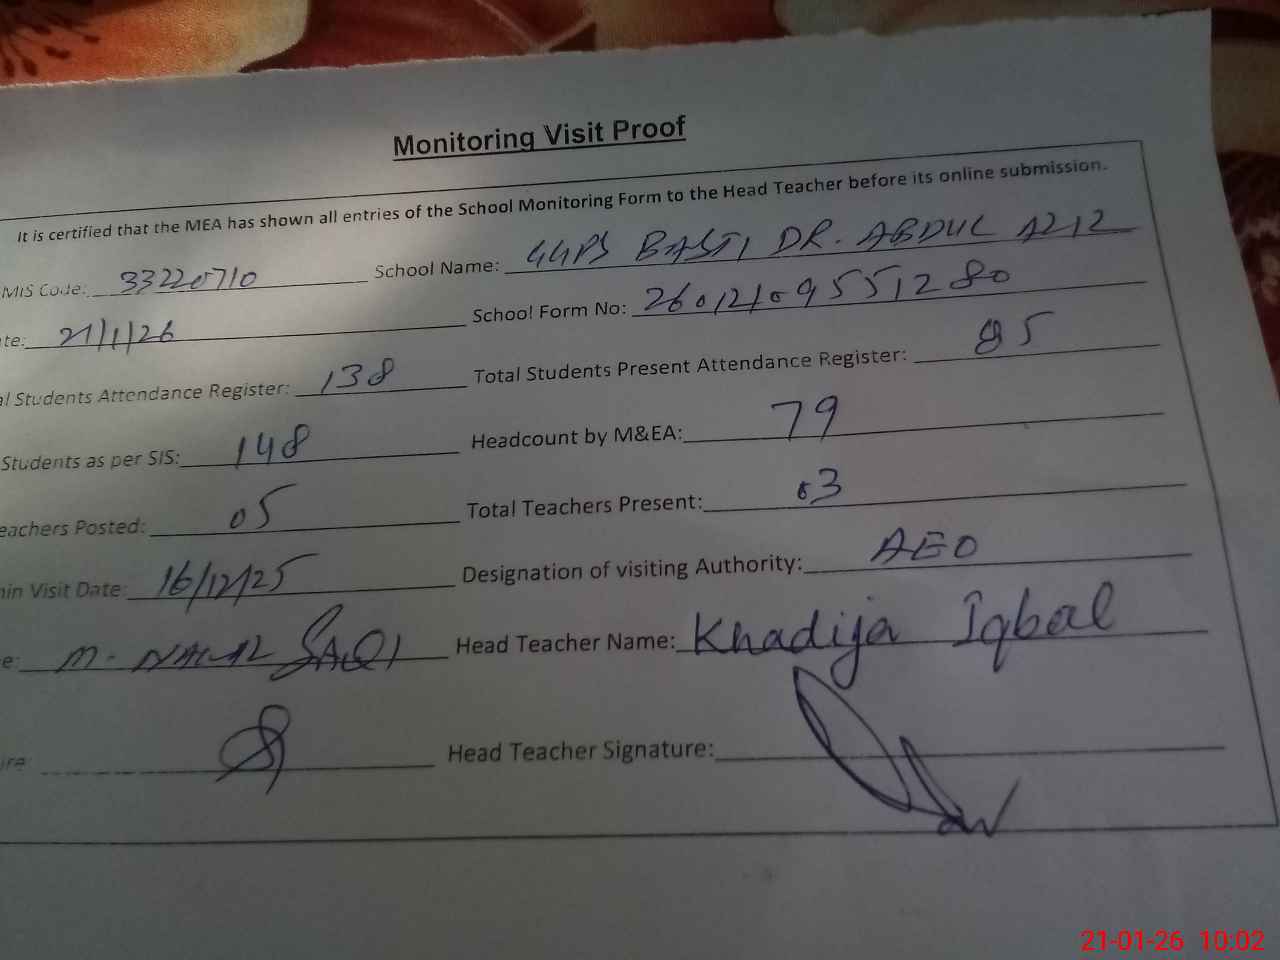 Monitoring Visit Proof
It is certified that the MEA has shown all entries of the School Monitoring Form to the Head Teacher before its online submission.
MIS Code: 33220710 School Name: GGPS BASTI DR. ABDUL AZIZ
te: 21/1/26 School Form No: 26012109551280
al Students Attendance Register: 138 Total Students Present Attendance Register: 85
Students as per SIS: 148 Headcount by M&EA: 79
eachers Posted: 05 Total Teachers Present: 03
min Visit Date: 16/12/25 Designation of visiting Authority: AEO
e: M. SAQI Head Teacher Name: Khadija Iqbal
ure Head Teacher Signature:
21-01-26 10:02